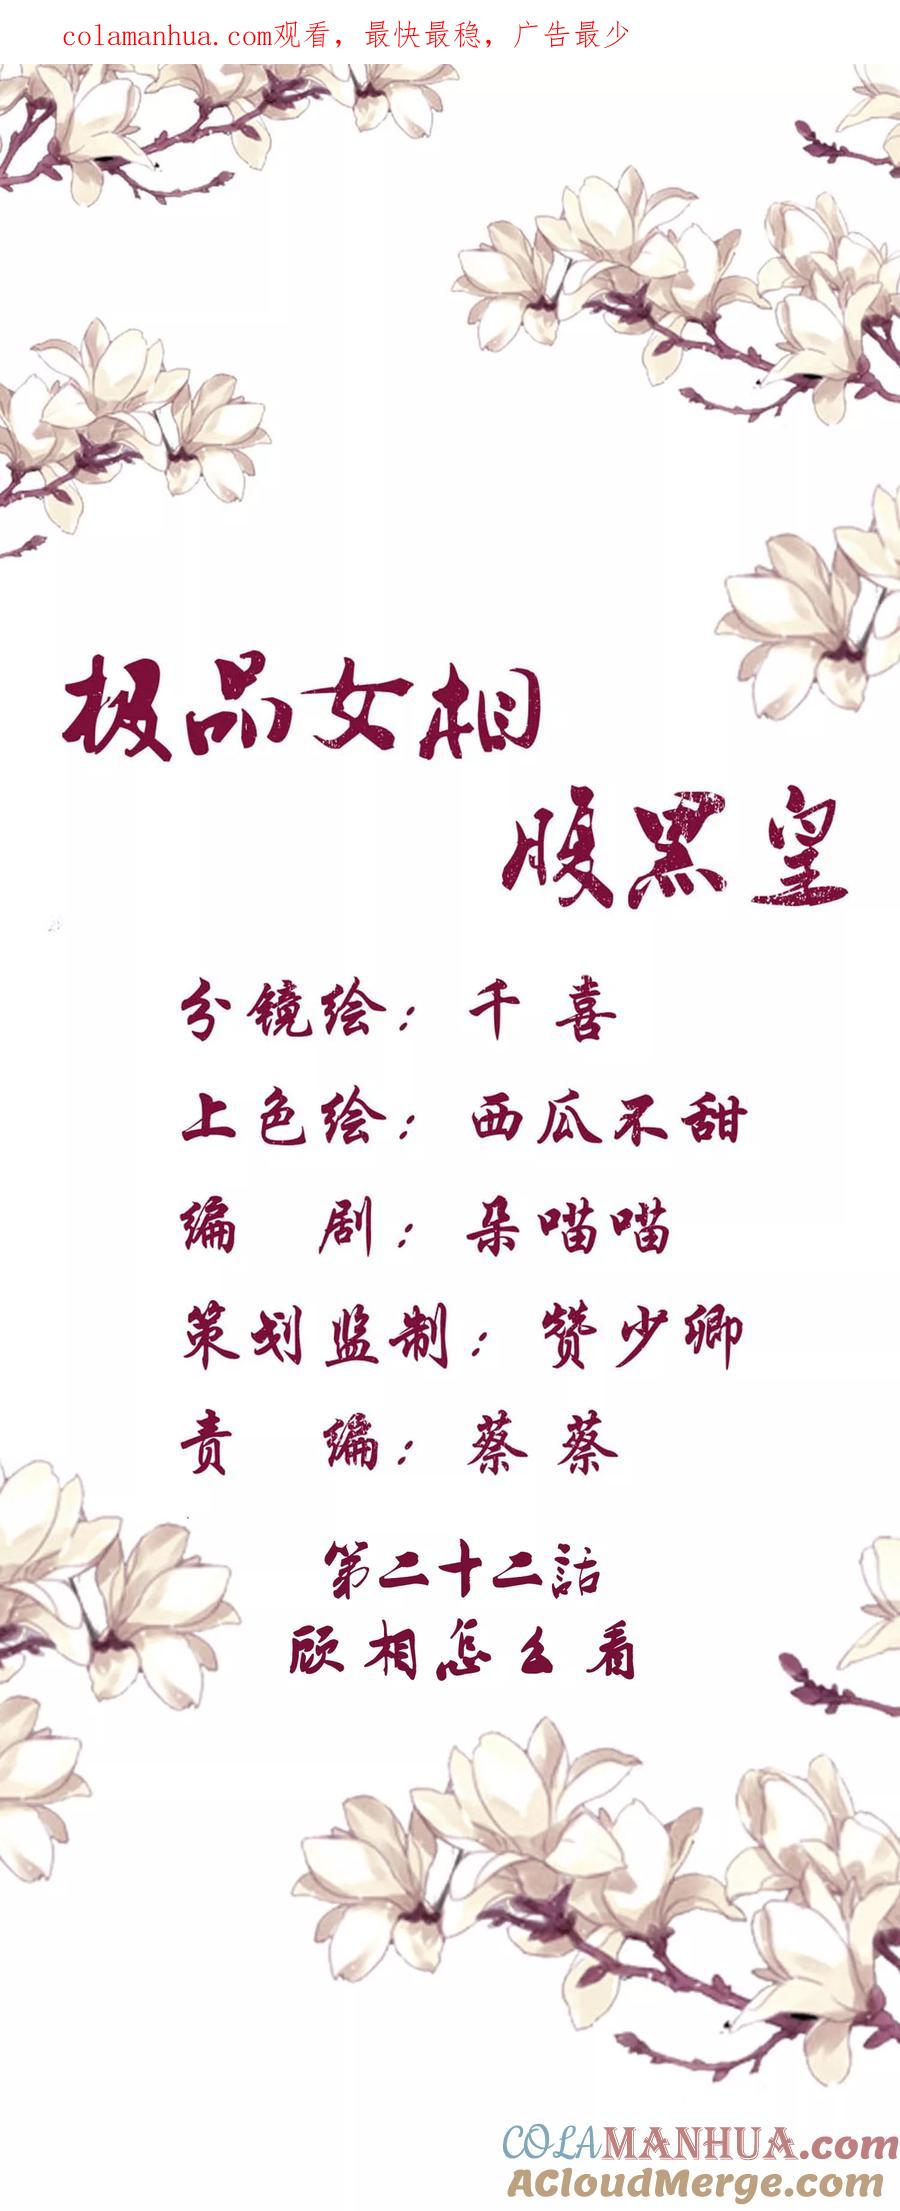 colamanhua.com观看，最快最稳，广告最少
极品女相
腹黑皇
分镜绘：千喜
上色绘：西瓜不甜
编 剧：朵喵喵
策划监制：赞少卿
责 编：蔡蔡
第二十二話
顾相怎么看
COLAMANHUA.com
ACloudMerge.com